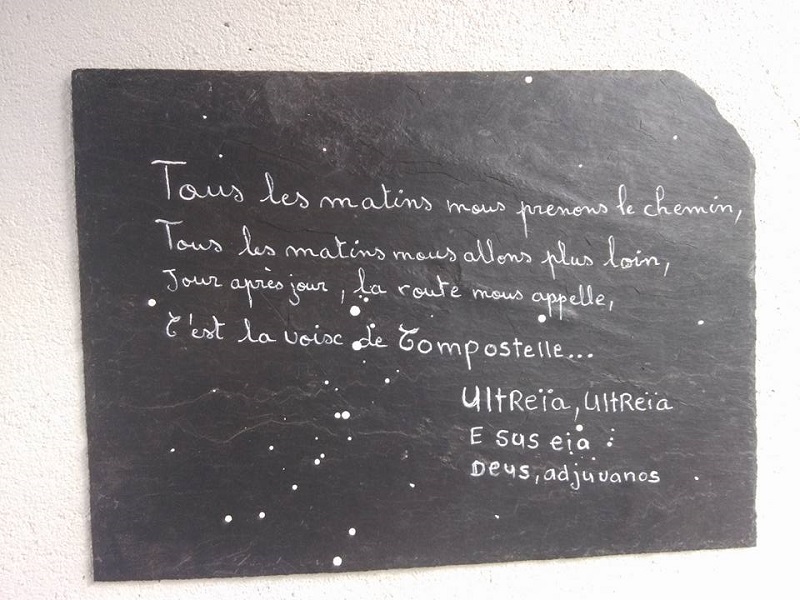 Tous les matins nous prenons le chemin,
Tous les matins nous allons plus loin,
Jour après jour, la route nous appelle,
C'est la voix de Compostelle...
Ultreïa, Ultreïa
E sus eia
Deus, adjuvanos